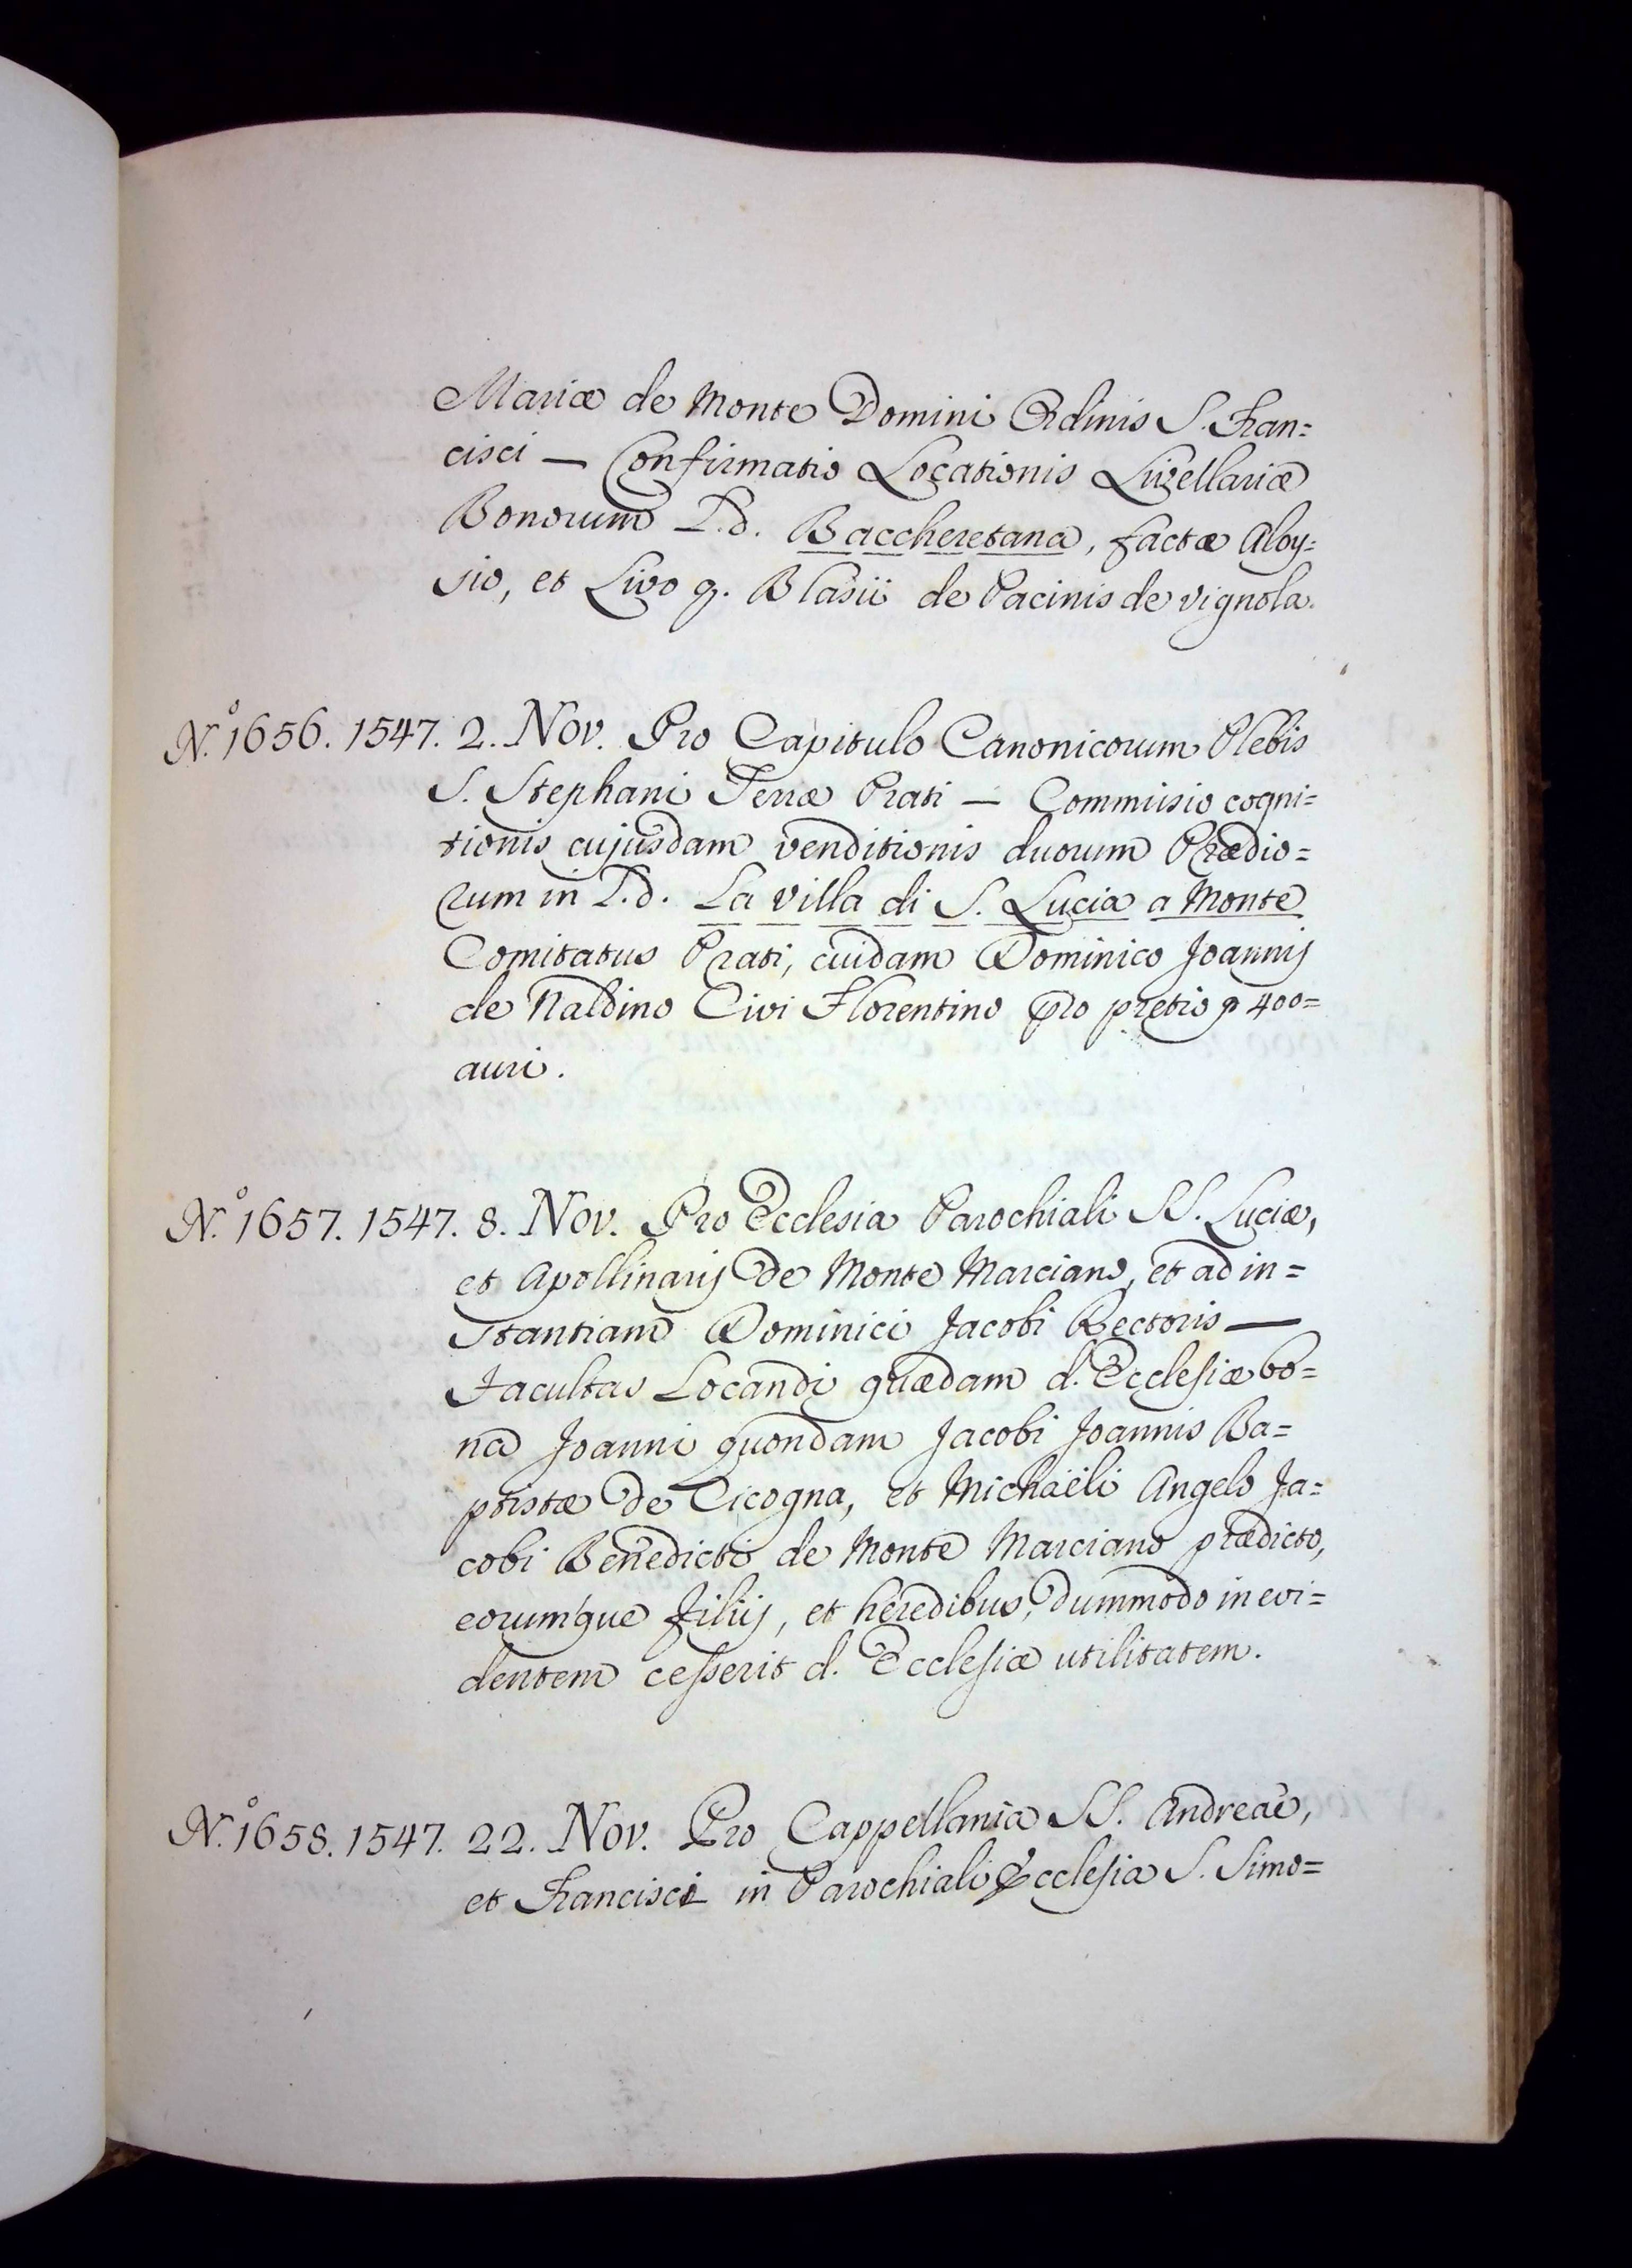 Mariæ de Monte Domini Ordinis S. Fran=
cisci — Confirmatio Locationis Livellariæ
Bonorum L.d. Baccheretana, factæ Aloy=
sio, et Livo q. Blasii de Pacinis de Vignola.
N.º 1656. 1547. 2. Nov. Pro Capitulo Canonicorum Plebis
S. Stephani Terræ Prati — Commissio cogni=
tionis cujusdam venditionis duorum Prædio=
rum in L.d. La Villa di S. Lucia a Monte
Comitatus Prati, cuidam Dominico Joannis
de Naldino Civi Florentino pro pretio 400=
auri.
N.º 1657. 1547. 8. Nov. Pro Ecclesia Parochiali SS. Luciæ,
et Apollinarij de Monte Marciano, et ad in=
stantiam Dominici Jacobi Rectoris —
Facultas Locandi quædam d. Ecclesiæ bo=
na Joanni quondam Jacobi Joannis Ba=
ptistæ de Cicogna, et Michaëli Angelo Ja=
cobi Benedicti de Monte Marciano prædicto,
eorumque filiij, et heredibus, dummodo in evi=
dentem cesserit d. Ecclesiæ utilitatem.
N.º 1658. 1547. 22. Nov. Pro Cappellania SS. Andreae,
et Francisci in Parochiali Ecclesia S. Simo=